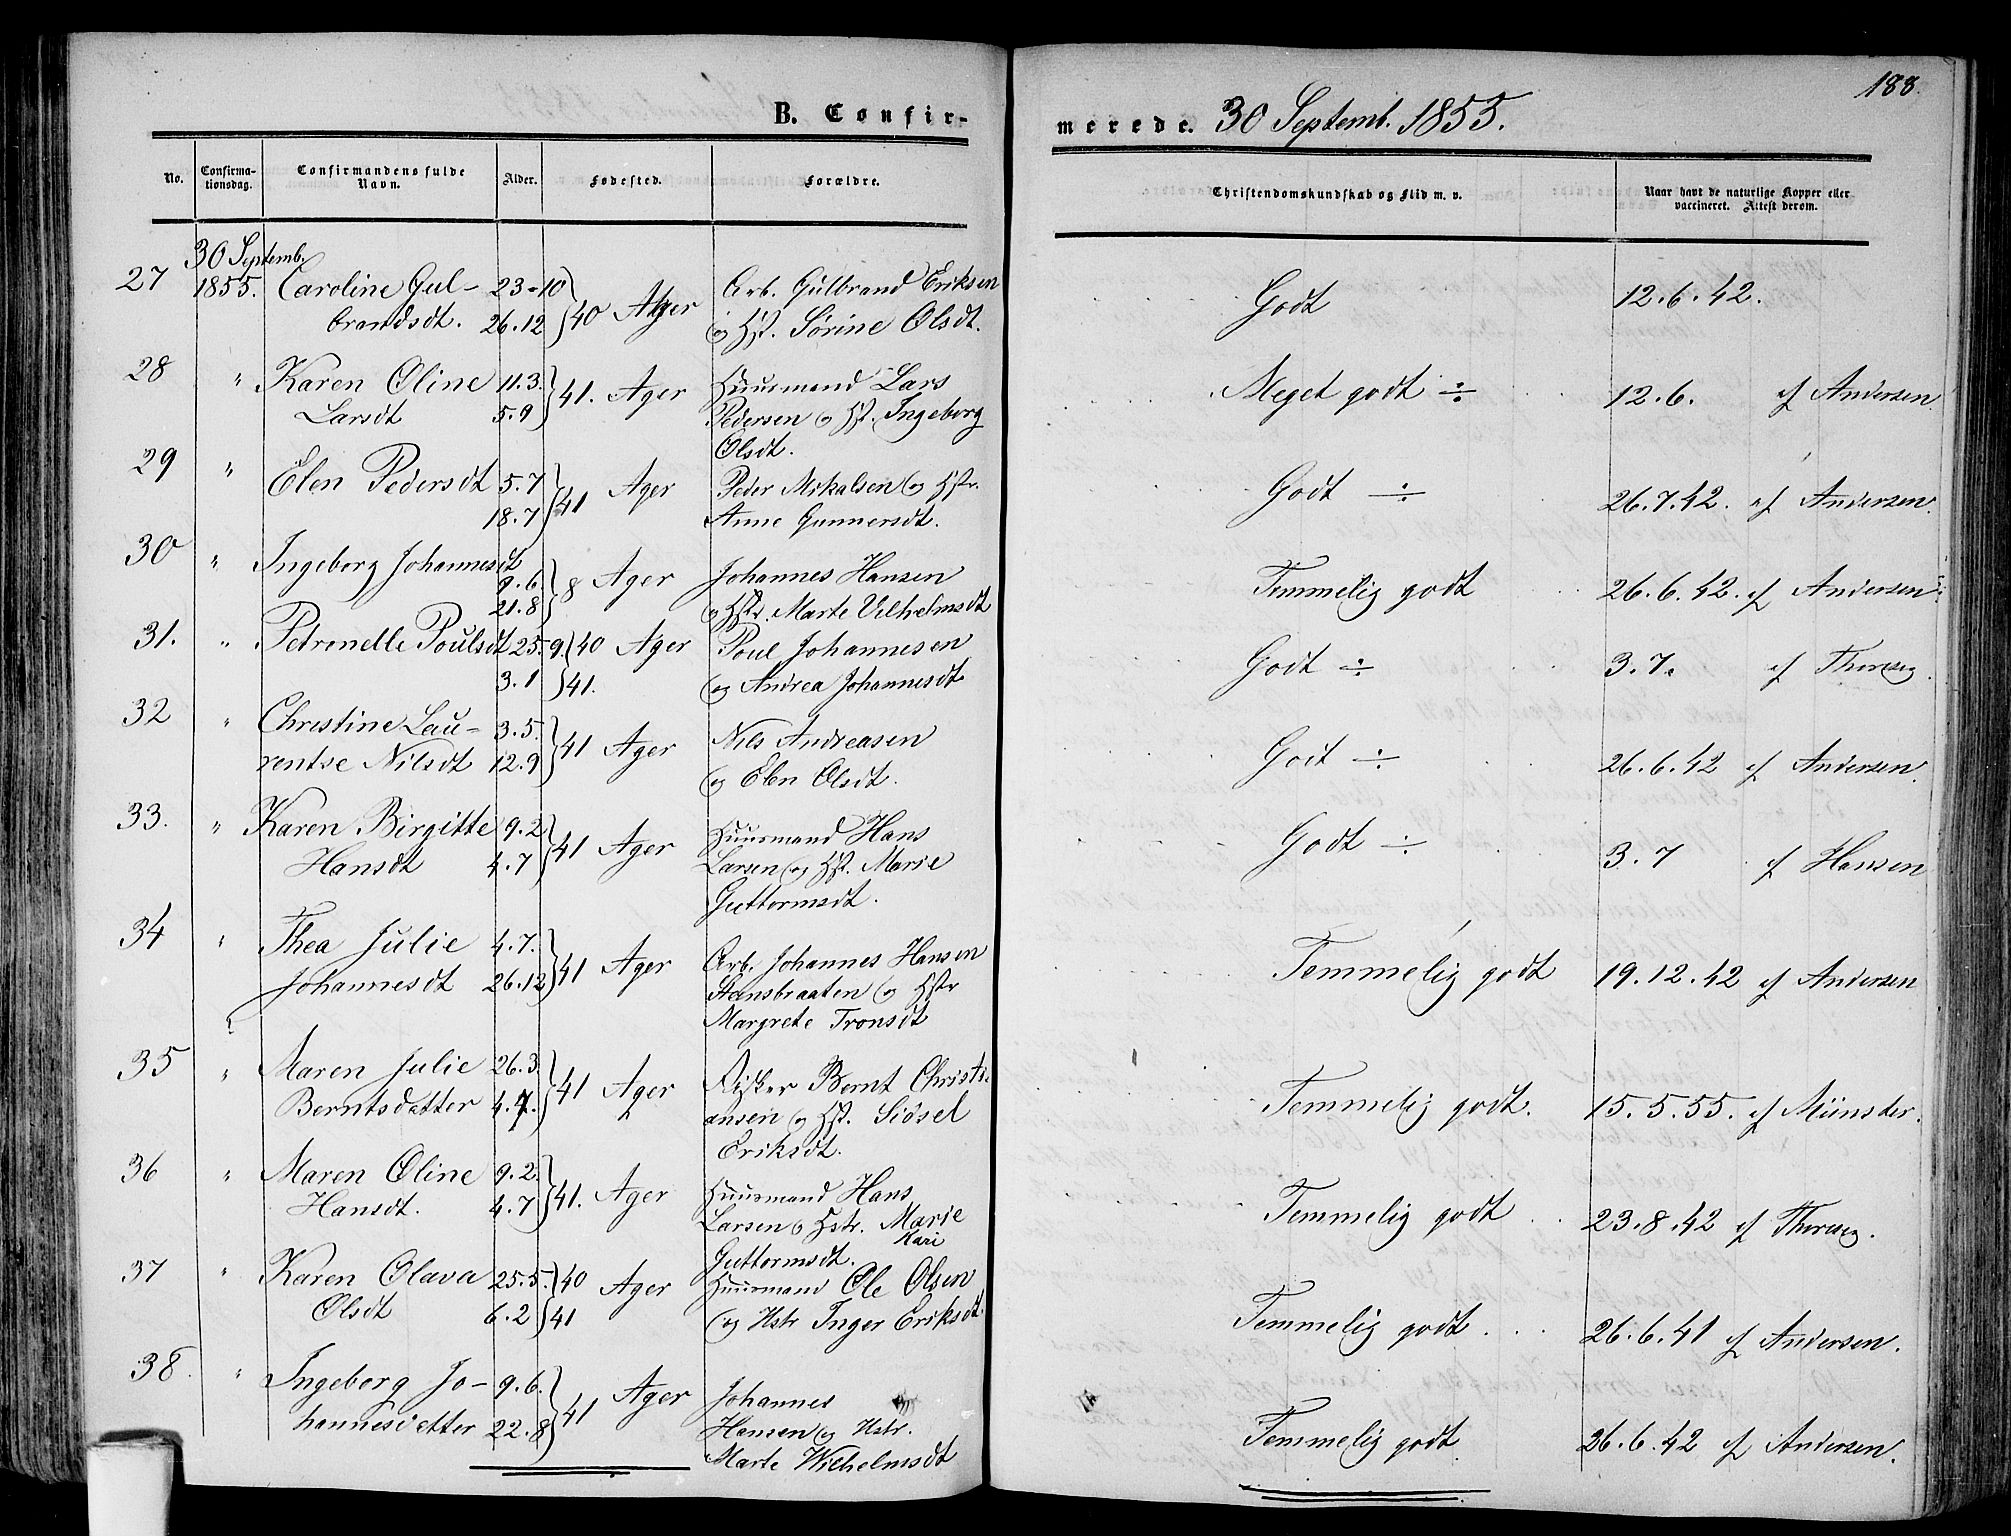 188.
B. Confir-
merede. 30 Septemb. 1855.
No.
Confirma-
tionsdag.
Confirmandens fulde
Navn.
Alder.
Fødested.
Forældre.
Christendomskundskab og Flid m. v.
Naar havt de naturlige Kopper eller
vaccineret. Attest derom.
30 Septemb.
27 1855. Caroline Gul- 23-10 } 40 Ager Arb. Gulbrand Eriksen Godt 12.6.42.
brandsdt. 26.12 og Hst. Sörine Olsdt.
28 " Karen Oline 11.3. } 41. Ager Huusmand Lars Meget godt ÷ 12.6. af Andersen
Larsdt 5.9 Pedersen og Hst. Ingeborg
Olsdt.
29 " Elen Pedersdt 5.7 } 41 Ager Peder Mikalsen og Hstr. Godt ÷ 26.7.42. af Andersen.
18.7 Anne Gunnersdt.
30 " Ingeborg Johannesdt Ager Johannes Hansen Temmelig godt 26.6.42. af Andersen
9.6 } 8
21.8 og Hstr. Marte Vilhelmsdt
31. " Petronelle Poulsdt 25-9. } 40 Ager Poul Johannesen Godt ÷ 3.7. af
3.1 } 41. og Andrea Johannesdt
32 " Christine Lau- 3.5. } 41 Ager Nils Andreasen Godt ÷ 26.6.42 af Andersen.
rentse Nilsdt 12.9 og Elen Olsdt.
33. " Karen Birgitte 9.2 } 41 Ager Huusmand Hans Godt ÷ 3.7 af Hansen
Hansdt 4.7 Larsen og Hst. Marie
Guttormsdt.
34 " Thea Julie 4.7. } 41 Ager Arb. Johannes Hansen Temmelig godt 19.12.42 af Andersen
Johannesdt 26.12 Stensbraaten og Hstr
Margrete Tronsdt
35 " Maren Julie 26.3. } 41 Ager Fisker Bernt Christi- Temmelig godt. 15.5.55. af Münster.
Berntsdatter 4.7. ansen og Hst. Sidsel
Eriksdt.
36 " Maren Oline 9.2. } 41. Ager Huusmand Hans Temmelig godt 23.8.42 af
Hansdt. 4.7 Larsen og Hstr. Marie
Kari
Guttormsdt.
37 " Karen Olava 25.5. } 40 Ager Huusmand Ole Olsen Temmelig godt. 26.6.41 af Andersen.
Olsdt 6.2 } 41 og Hstr Inger Eriksdt.
38. " Ingeborg Jo- 9.6. } 41 Ager Johannes Temmelig godt 26.6.42 af Andersen.
hannesdatter 22.8 Hansen og Hstr.
Marte Wilhelmsdt